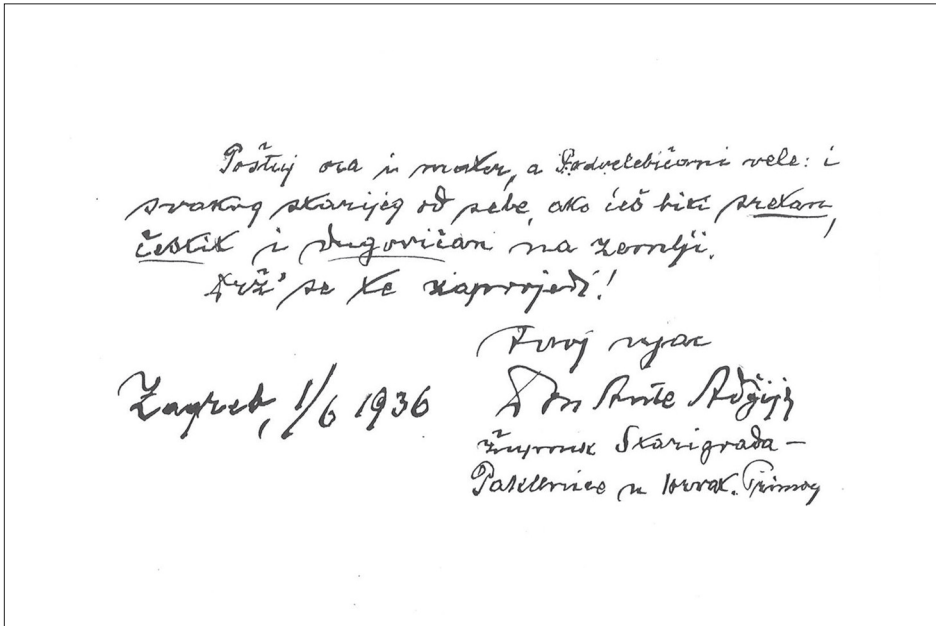 Poštuj oca i mater, a Podvelebičani vele: i
svakog starijeg od sebe, ako ćeš biti sretan,
čestit i dugovičan na zemlji.
Drž' se te zapovjedi!
Tvoj ujac
Zagreb, 1/6 1936
Don Ante Adžija
župnik Starigrada-
Paklenice u hrvat. Primorj